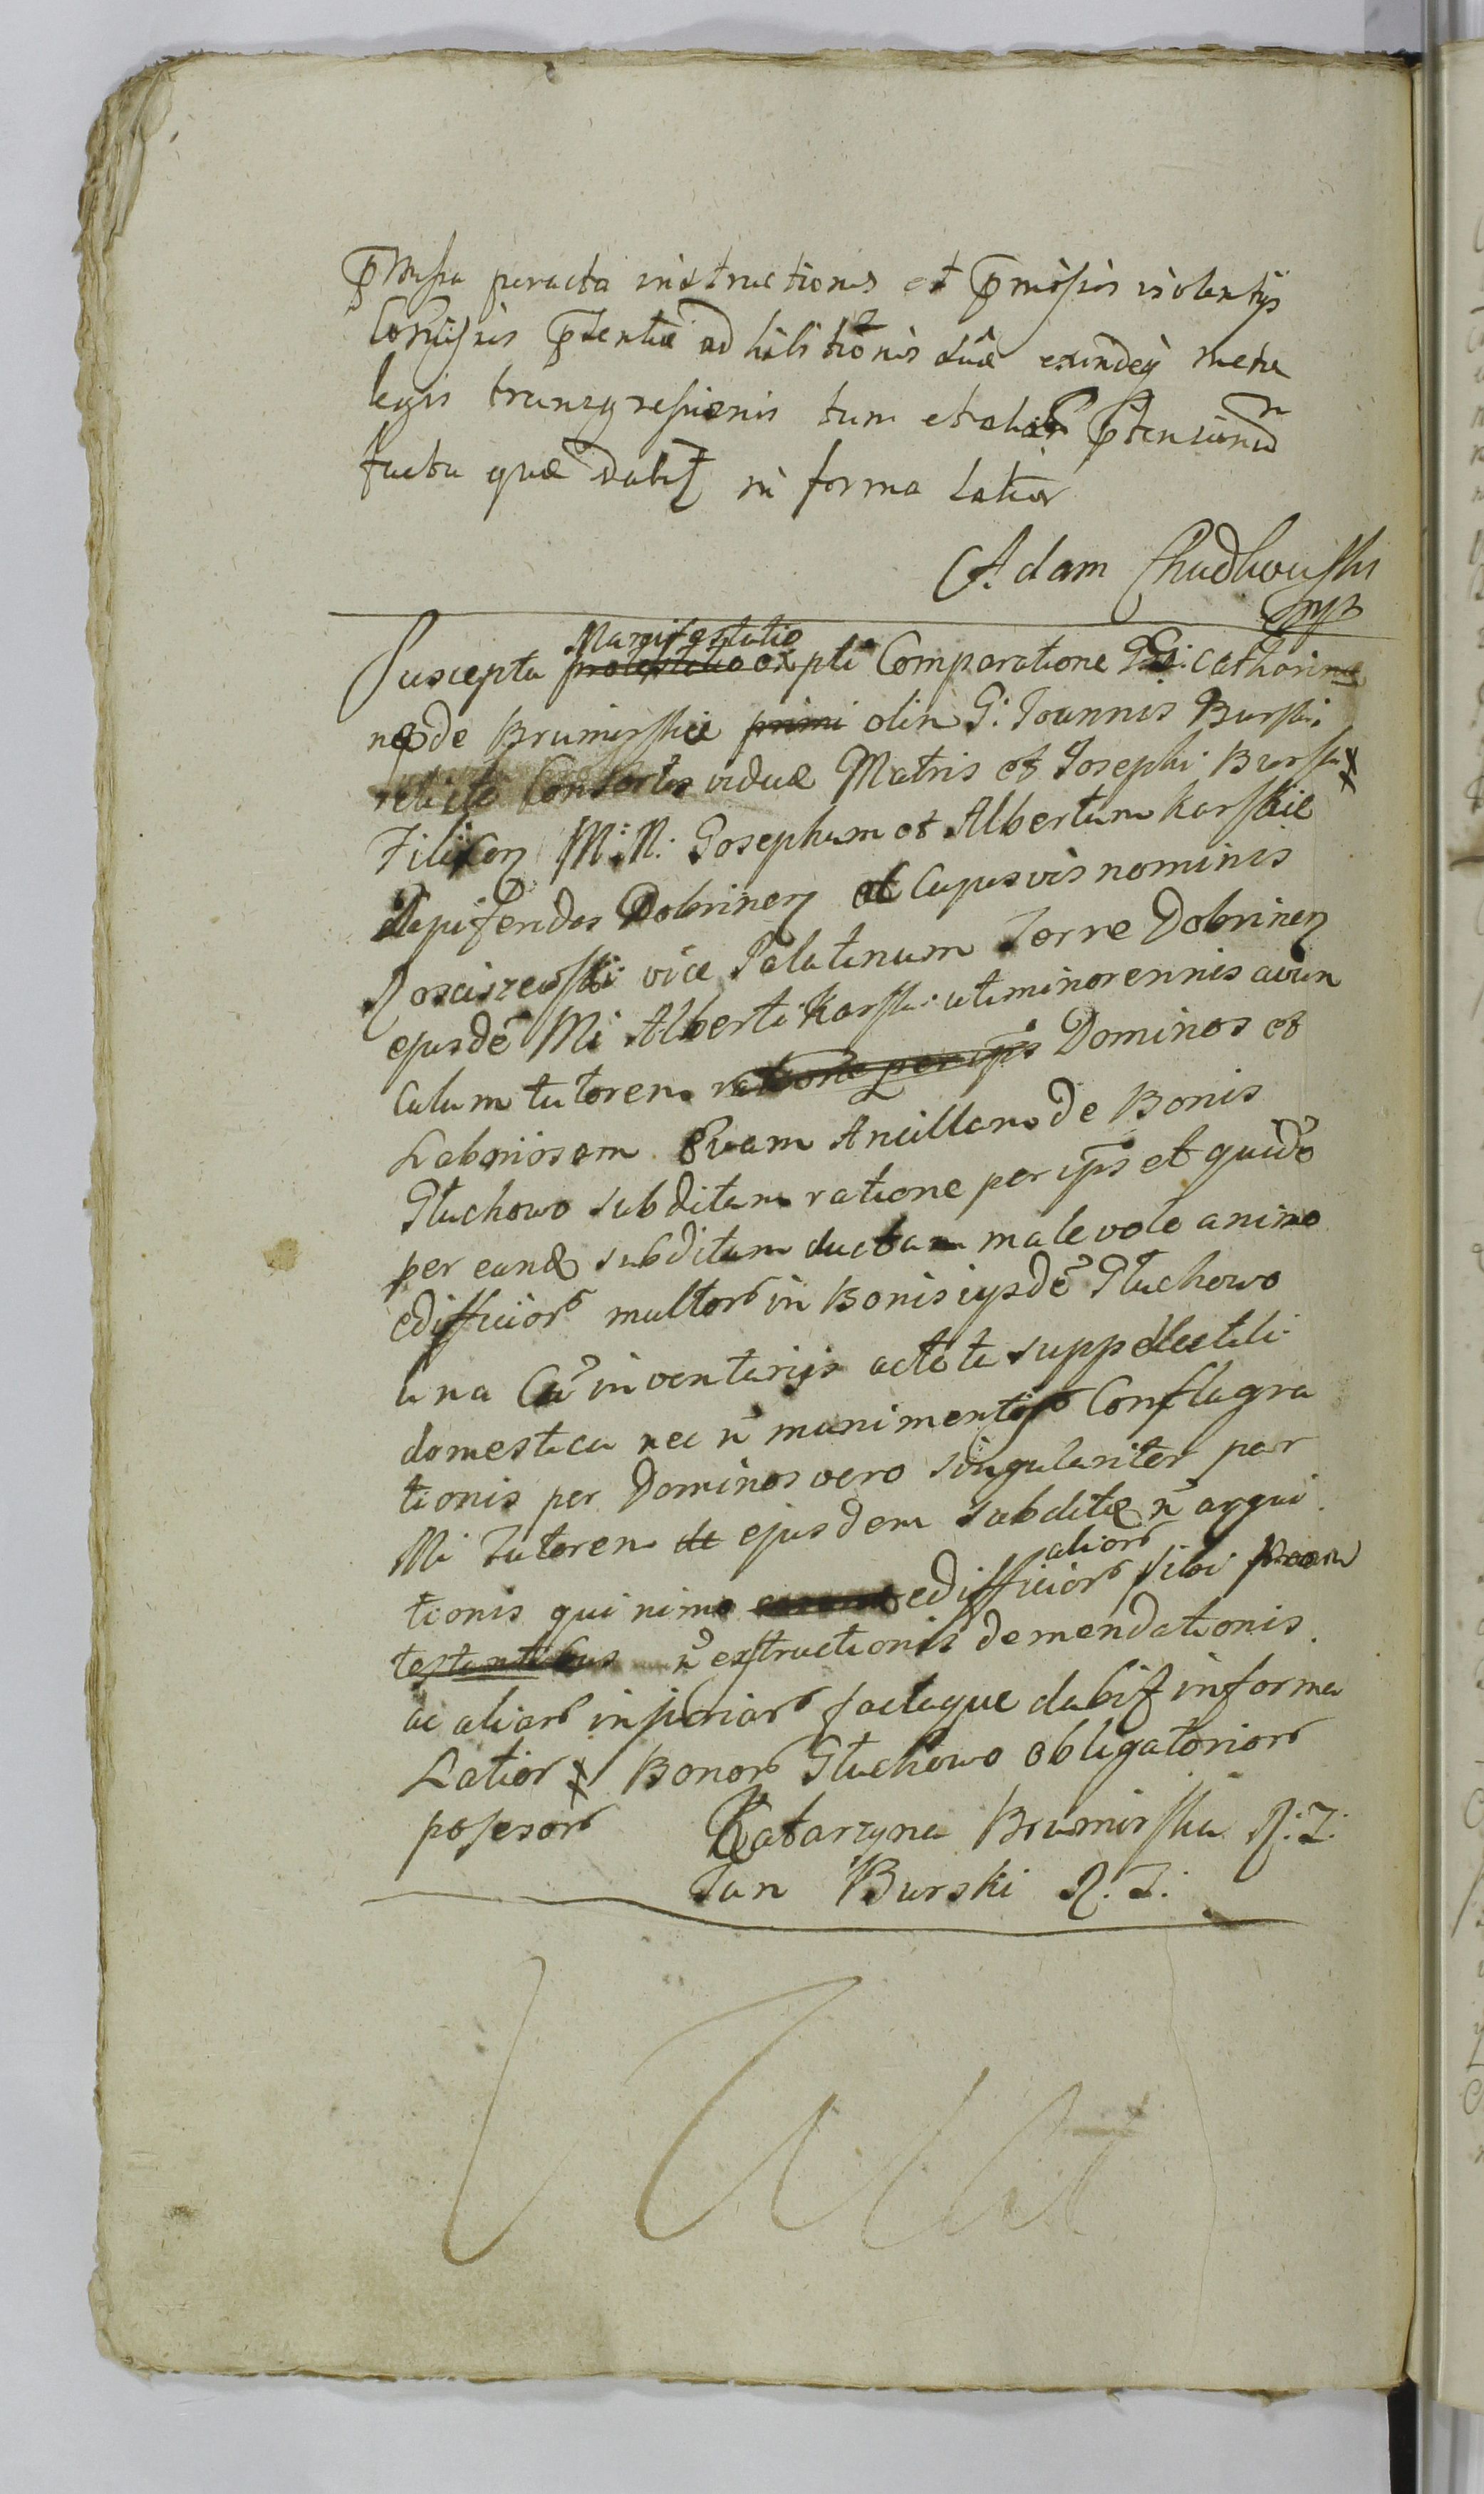 p̄missa peracta instructionis et p̄missis violentijs
Comissis p̄tentiæ ad habitionis suæ exindeq̢ metæ
legis transgressionis tum et aliar p̄tensionū
facta quæ dabit in forma Latior
Adam Chudkowski
mp
Suscepta Manifestatio expti Comparatione G. Catharinæ
de Brumirskie olim G: Joannis Burski
relictæ Consortis viduæ Matris et Josephi Burski ⨯
Filij Con M: N: Josephum et Albertum Karskie
dapiferidas Dobrinen ac Cujusvis nominis
Rosciszewski vice Palatinum Terre Dobrinen
ejusdē Mi Alberti Karski uti minorennis avun
culum tutorem Dominos et
Laboriosam Evam Ancillam de Bonis
Głuchowo subditam ratione per ip̄s et quidē
per eand subditam ductam malevolo animo
edifficior multor in Bonis ijsdē Głuchowo
una Cū inventarijs actota suppellectili
domestica nec n̄ munimentis Conflagra
tionis per Dominos vero singulariter per
Mi Tutorem ejusdem subditæ n̄ aqui
tionis qui nimo edifficior alior sibi
n̄ exstructionis demendationis
ac aliar injuriar factaque dabit in forma
Latior ⨯ Bonor Głuchowo obligatorior
posesor Katarzyna Brumirska R: Z:
Jan Burski R: Z: